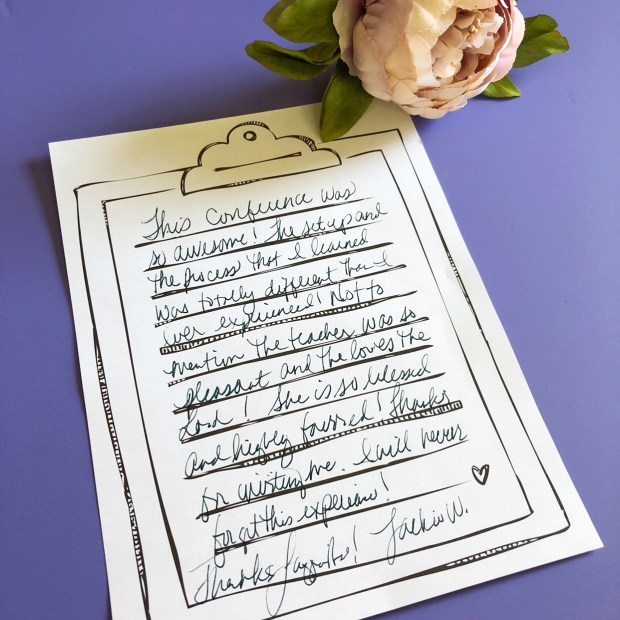 This Conference was
so awesome! The set up and
the process that I learned
was totally different than I
ever experienced! Not to
mention the teacher was so
pleasant and the loves the
Lord! She is so blessed
and highly favored! Thanks
for inviting me. I will never
forget this experience!
Thanks Jackie W.